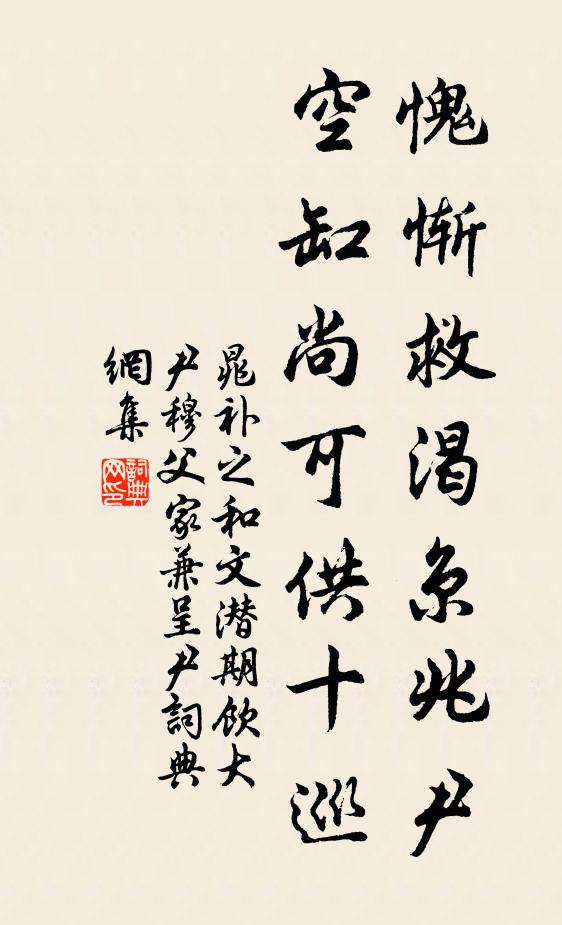 愧慚救渴京兆尹
空缸尚可供十巡
晁补之和文潜期飲大
尹穆父家兼呈尹詞典
網集
詞典网印